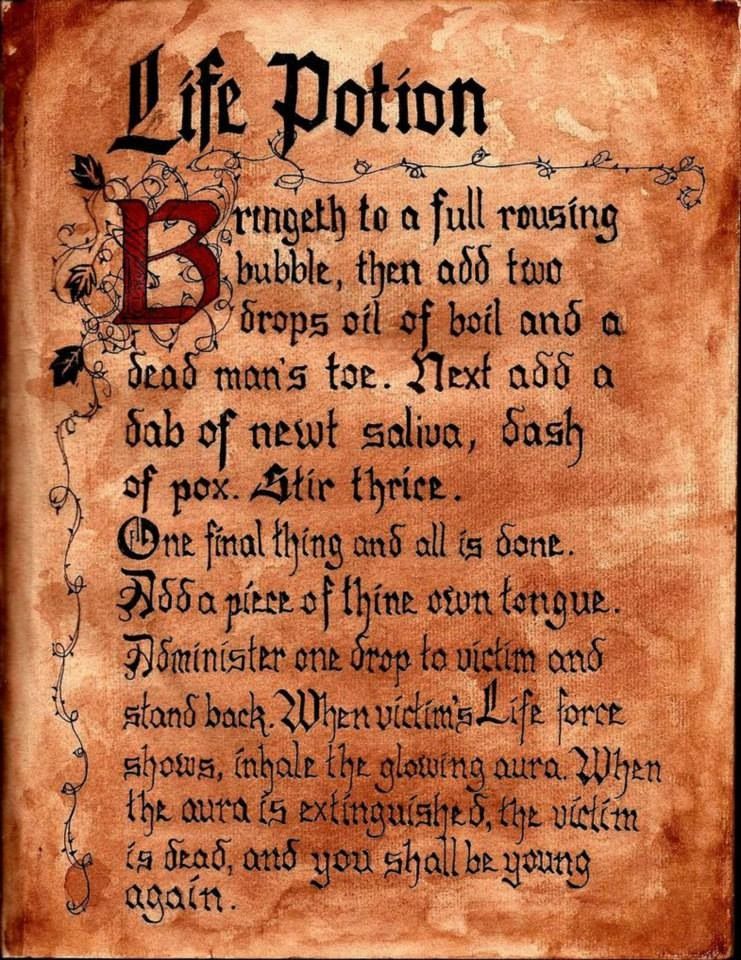 Life Potion
Bringeth to a full rousing
bubble, then add two
drops oil of boil and a
dead man's toe. Next add a
dab of newt saliva, dash
of pox. Stir thrice.
One final thing and all is done.
Add a piece of thine own tongue.
Administer one drop to victim and
stand back. When victim's Life force
shows, inhale the glowing aura. When
the aura is extinguished, the victim
is dead, and you shall be young
again.